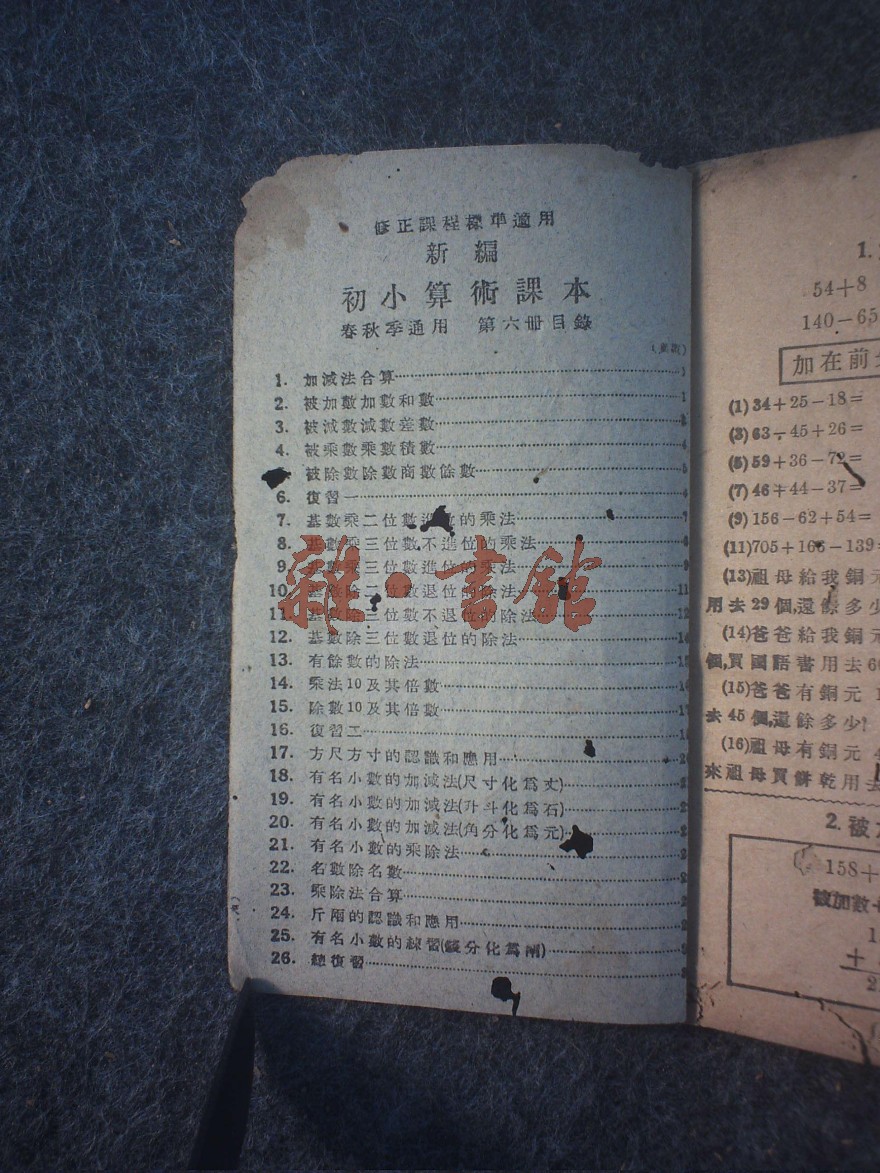 修正課程標準適用
新編
初小算術課本
春秋季通用 第六冊目錄
1. 加減法合算 1
2. 被加數加數和數 1
3. 被減數減數差數
4. 被乘數乘數積數 4
被除數除數商數餘數 5
6. 復習一 6
7. 基數乘二位數進位的乘法 7
8. 基數乘三位數不進位的乘法 8
9. 基數乘三位數進位的乘法 9
10. 基數除二位數退位的除法 11
11. 基數除三位數不退位的除法 12
12. 基數除三位數退位的除法
13. 有餘數的除法
14. 乘法10及其倍數
15. 除數10及其倍數 17
16. 復習二
17. 方尺方寸的認識和應用
18. 有名小數的加減法(尺寸化爲丈)
19. 有名小數的加減法(升斗化爲石)
20. 有名小數的加減法(角分化爲元)
21. 有名小數的乘除法
22. 名數除名數
23. 乘除法合算
24. 斤兩的認識和應用
25. 有名小數的練習(錢分化爲兩)
26. 總復習
雜·書館
1.
54+8
140-65
加在前
(1)34+25-18=
(3)63-45+26=
(5)59+36-72=
(7)46+44-37=
(9)156-62+54=
(11)705+166-139=
(13)祖母給我銅元
用去29個,還餘多少
(14)爸爸給我銅元
個,買國語書用去6
(15)爸爸有銅元 1
去45個,還餘多少!
(16)祖母有銅元 4
來祖母買餅乾用去
2. 被
158+
被加數+
1
+
2